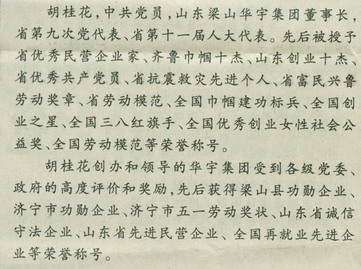 胡桂花,中共党员,山东梁山华宇集团董事长,
省第九次党代表、省第十一届人大代表。先后被授予
省优秀民营企业家、齐鲁巾帼十杰、山东创业十杰、
省优秀共产党员、省抗震救灾先进个人、省富民兴鲁
劳动奖章、省劳动模范、全国巾帼建功标兵、全国创
业之星、全国三八红旗手、全国优秀创业女性社会公
益奖、全国劳动模范等荣誉称号。
胡桂花创办和领导的华宇集团受到各级党委、
政府的高度评价和奖励,先后获得梁山县功勋企业、
济宁市功勋企业、济宁市五一劳动奖状、山东省诚信
守法企业、山东省先进民营企业、全国再就业先进企
业等荣誉称号。